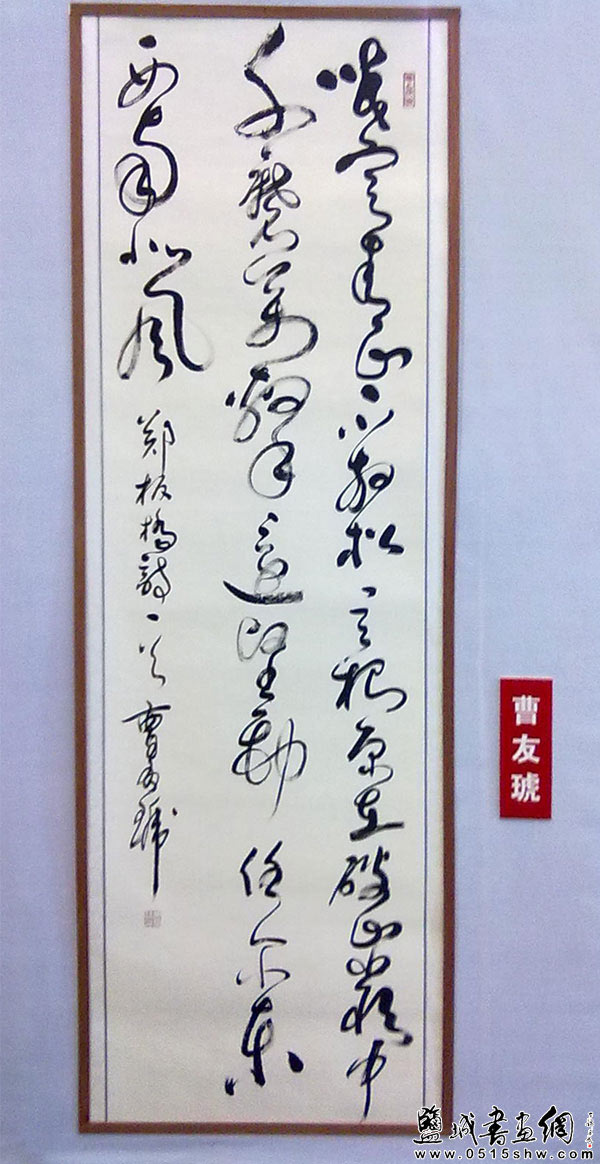 咬定青山不放松立根原在破巖中
千磨萬擊還堅勁任尔東
西南北風 郑板橋詩一首 曹友琥
曹友琥
鹽城書畫網
www.0515shw.com